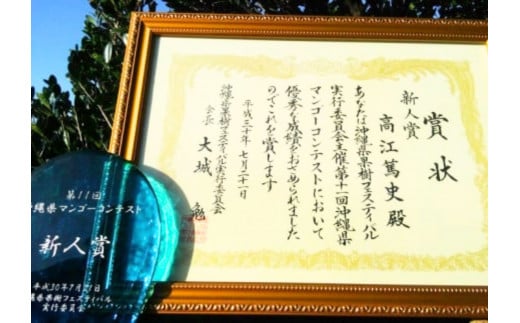 賞状
新人賞
高江篤史殿
あなたは沖縄県果樹フェスティバル
実行委員会主催第十一回沖縄県
マンゴーコンテストにおいて
優秀な成績をおさめられました
のでこれを賞します
平成三十年七月二十一日
沖縄県果樹フェスティバル実行委員会
会長 大城
第11回
縄県マンゴーコンテスト
新人賞
平成30年7月21日
縄県果樹フェスティバル
実行委員会